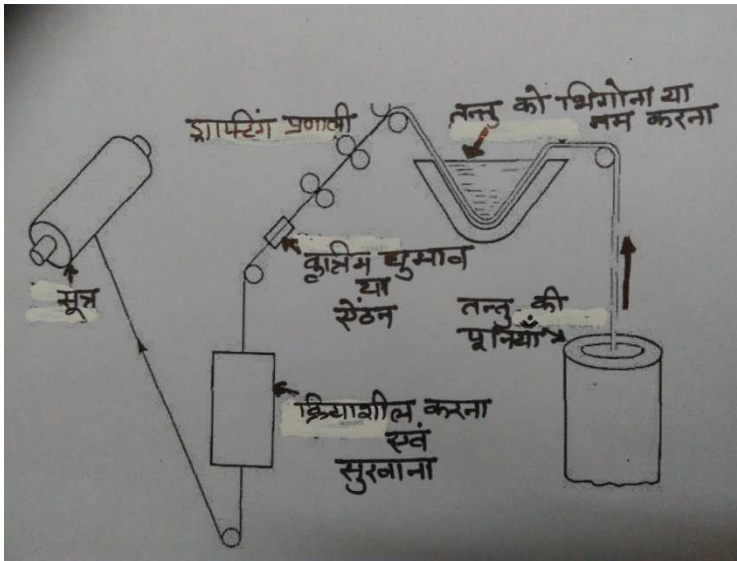 ड्राफ्टिंग प्रणाली
तन्तु को भिगोना या
नम करना
कृत्रिम घुमाव
या
ऐंठन
सूत्र
तन्तु की
पूनियाँ
क्रियाशील करना
एवं
सुखाना